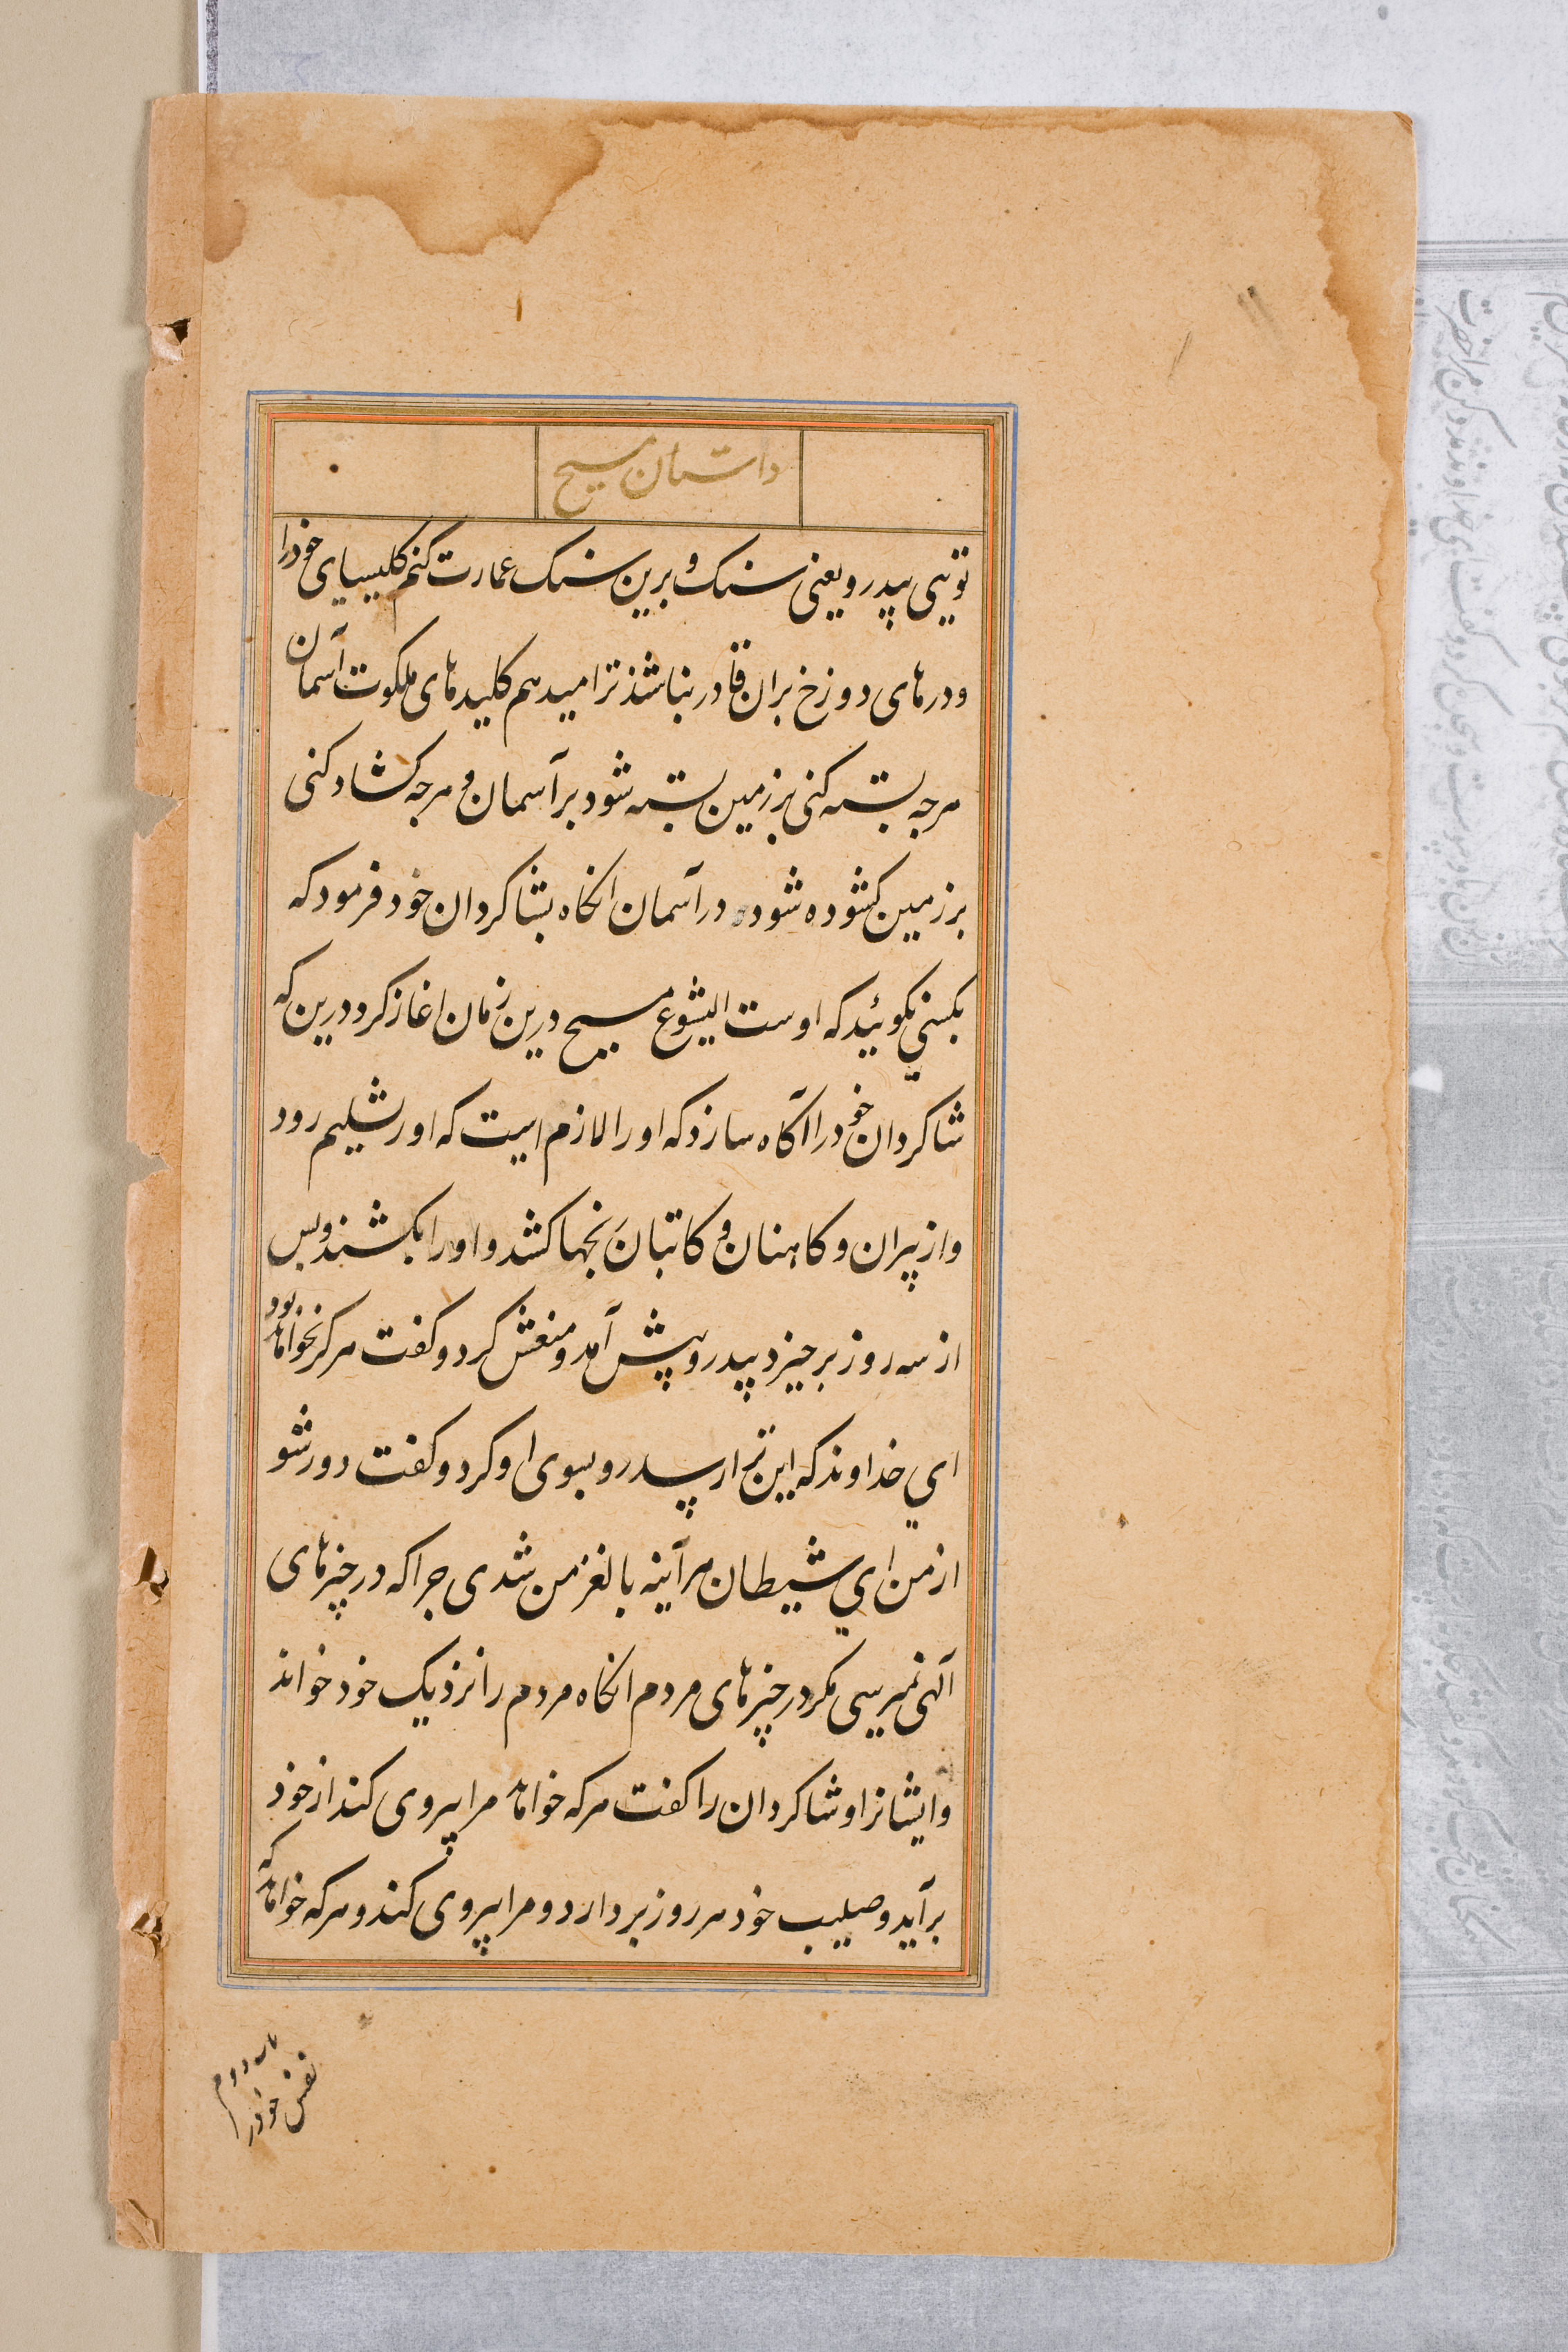 داستان مسیح
تویی پیدرو یعنی سنک و برین سنک عمارت کنم کلیسیای خودرا
و درهای دوزخ بران قادر نباشند ترا میدهم کلیدهای ملکوت آسمان
هرچه بسته کنی بر زمین بسته شود بر آسمان و هرچه کشاد کنی
بر زمین کشوده شود در آسمان انکاه بشاکردان خود فرمود که
بکسی نکوئید که اوست الیشوع مسیح درین زمان اغاز کرد درین که
شاکردان خود را آکاه سازد که او را لازم است که اورشلیم رود
و از پیران و کاهنان و کاتبان رنجها کشد و اورا بکشند و پس
از سه روز برخیزد پیدرو پیش آمد و منعش کرد و کفت هرکز نخواهد بود
ای خداوند که این ترا رسد رو بسوی او کرد و کفت دور شو
از من ای شیطان هرآینه بالغز من شدی چراکه در چیزهای
آلهی نمیرسی مکر در چیزهای مردم انکاه مردم را نزدیک خود خواند
و ایشانرا و شاکردان را کفت هرکه خواهد مرا پیروی کند از خود
برآید و صلیب خود هر روز بردارد و مرا پیروی کند و هرکه خواهد که
نفس خود را